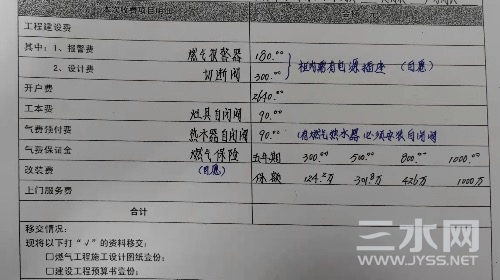 本次收费项目明细
工程建设费
其中：1、报警费 燃气报警器 180.00
2、设计费 切断阀 300.00 柜内需有电源插座 （自愿）
开户费 2640.00
工本费 灶具自闭阀 90.00
气费预付费 热水器自闭阀 90.00 （有燃气热水器必须安装自闭阀
气费保证金 燃气保险 五年期 300.00 500.00 800.00 1000.00
改装费 （自愿） 保额 124.2万 301.8万 426万 1000万
上门服务费
合计
移交情况：
现将以下打“√”的资料移交：
□燃气工程施工设计图纸壹份；
□建设工程预算书壹份；
三水网
WWW.JYSS.NET